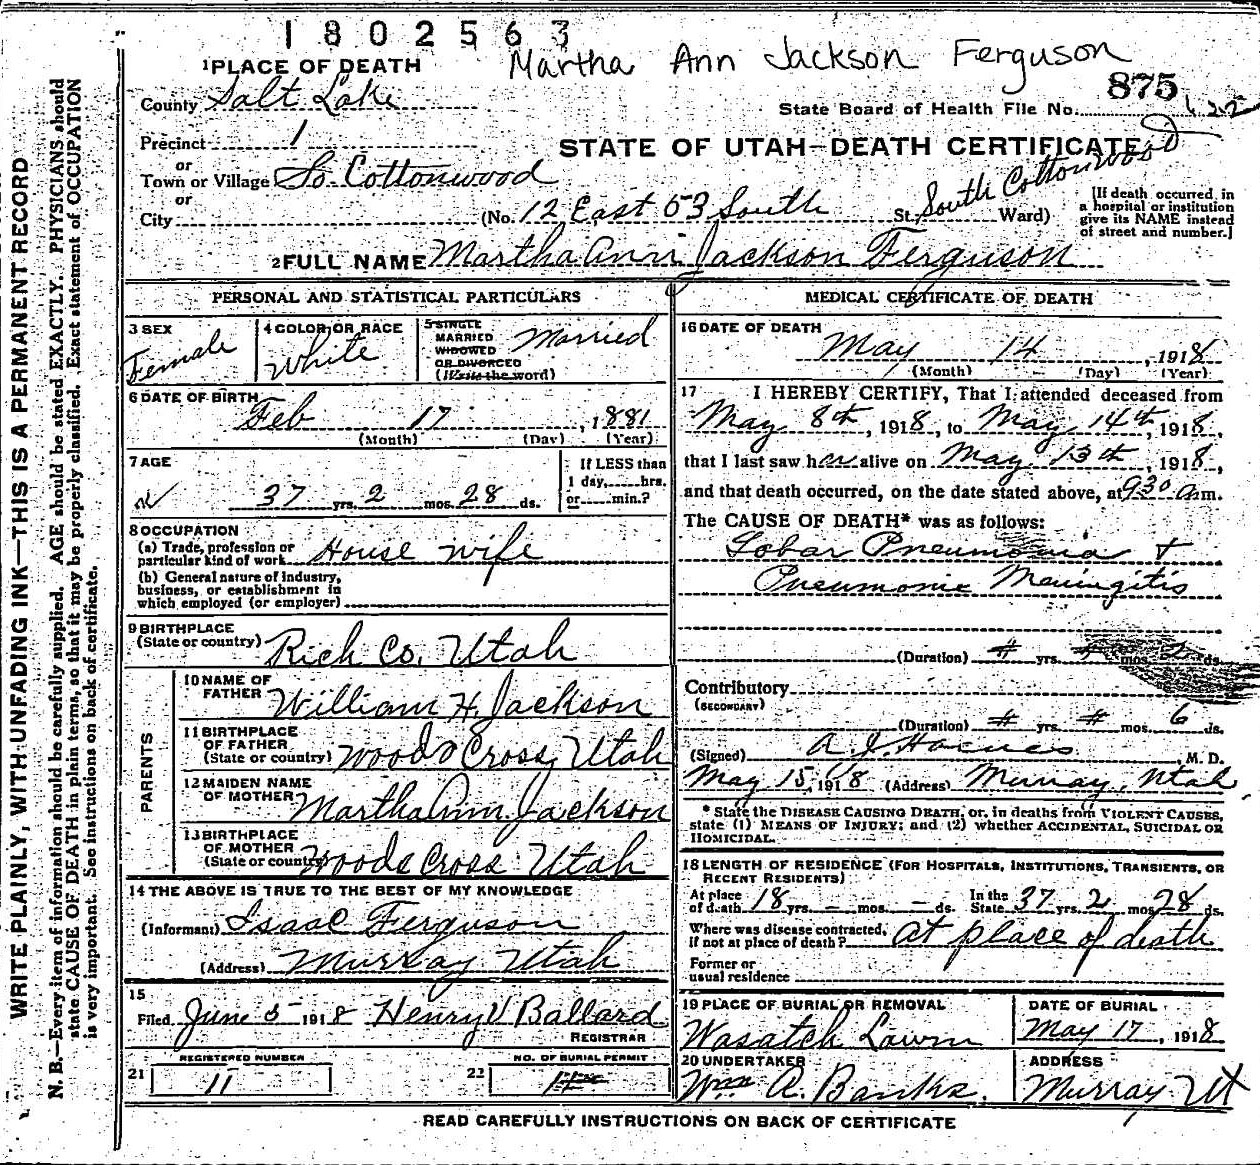 1802563
Martha Ann Jackson Ferguson
1 PLACE OF DEATH
875
County Salt Lake
State Board of Health File No.
Precinct 1
STATE OF UTAH—DEATH CERTIFICATE
or
Town or Village So. Cottonwood
or
City (No. 12 East 53 South St. South Cottonwood Ward)
[If death occurred in a hospital or institution give its NAME instead of street and number.]
2 FULL NAME Martha Ann Jackson Ferguson
PERSONAL AND STATISTICAL PARTICULARS
3 SEX Female
4 COLOR OR RACE White
5 SINGLE MARRIED WIDOWED OR DIVORCED (Write the word) Married
6 DATE OF BIRTH Feb 17, 1881
(Month) (Day) (Year)
7 AGE 37 yrs. 2 mos. 28 ds.
If LESS than 1 day, hrs. or min.?
8 OCCUPATION
(a) Trade, profession or particular kind of work House wife
(b) General nature of industry, business, or establishment in which employed (or employer)
9 BIRTHPLACE (State or country) Rich Co. Utah
PARENTS
10 NAME OF FATHER William H. Jackson
11 BIRTHPLACE OF FATHER (State or country) Woods Cross, Utah
12 MAIDEN NAME OF MOTHER Martha Ann Jackson
13 BIRTHPLACE OF MOTHER (State or country) Woods Cross Utah
14 THE ABOVE IS TRUE TO THE BEST OF MY KNOWLEDGE
(Informant) Isaac Ferguson
(Address) Murray Utah
15 Filed June 5 1918 Henry V Ballard
REGISTRAR
21 REGISTERED NUMBER 11
22 NO. OF BURIAL PERMIT
MEDICAL CERTIFICATE OF DEATH
16 DATE OF DEATH May 14, 1918
(Month) (Day) (Year)
17 I HEREBY CERTIFY, That I attended deceased from
May 8th, 1918, to May 14th, 1918,
that I last saw her alive on May 13th, 1918,
and that death occurred, on the date stated above, at 9 30 a m.
The CAUSE OF DEATH* was as follows:
Lobar Pneumonia +
Pneumonic Meningitis
(Duration) # yrs. mos. 2 ds.
Contributory
(SECONDARY)
(Duration) # yrs. # mos. 6 ds.
(Signed) A. J. M. D.
May 15, 1918 (Address) Murray, Utah.
* State the DISEASE CAUSING DEATH, or, in deaths from VIOLENT CAUSES, state (1) MEANS OF INJURY; and (2) whether ACCIDENTAL, SUICIDAL OR HOMICIDAL.
18 LENGTH OF RESIDENCE (FOR HOSPITALS, INSTITUTIONS, TRANSIENTS, OR RECENT RESIDENTS)
At place of death 18 yrs. – mos. – ds. In the State 37 yrs. 2 mos. 28 ds.
Where was disease contracted, if not at place of death? At place of death
Former or usual residence
19 PLACE OF BURIAL OR REMOVAL Wasatch Lawn
DATE OF BURIAL May 17, 1918
20 UNDERTAKER Wm R. Banks.
ADDRESS Murray Ut
READ CAREFULLY INSTRUCTIONS ON BACK OF CERTIFICATE
WRITE PLAINLY, WITH UNFADING INK—THIS IS A PERMANENT RECORD
N. B.—Every item of information should be carefully supplied. AGE should be stated EXACTLY. PHYSICIANS should
state CAUSE OF DEATH in plain terms, so that it may be properly classified. Exact statement of OCCUPATION
is very important. See instructions on back of certificate.